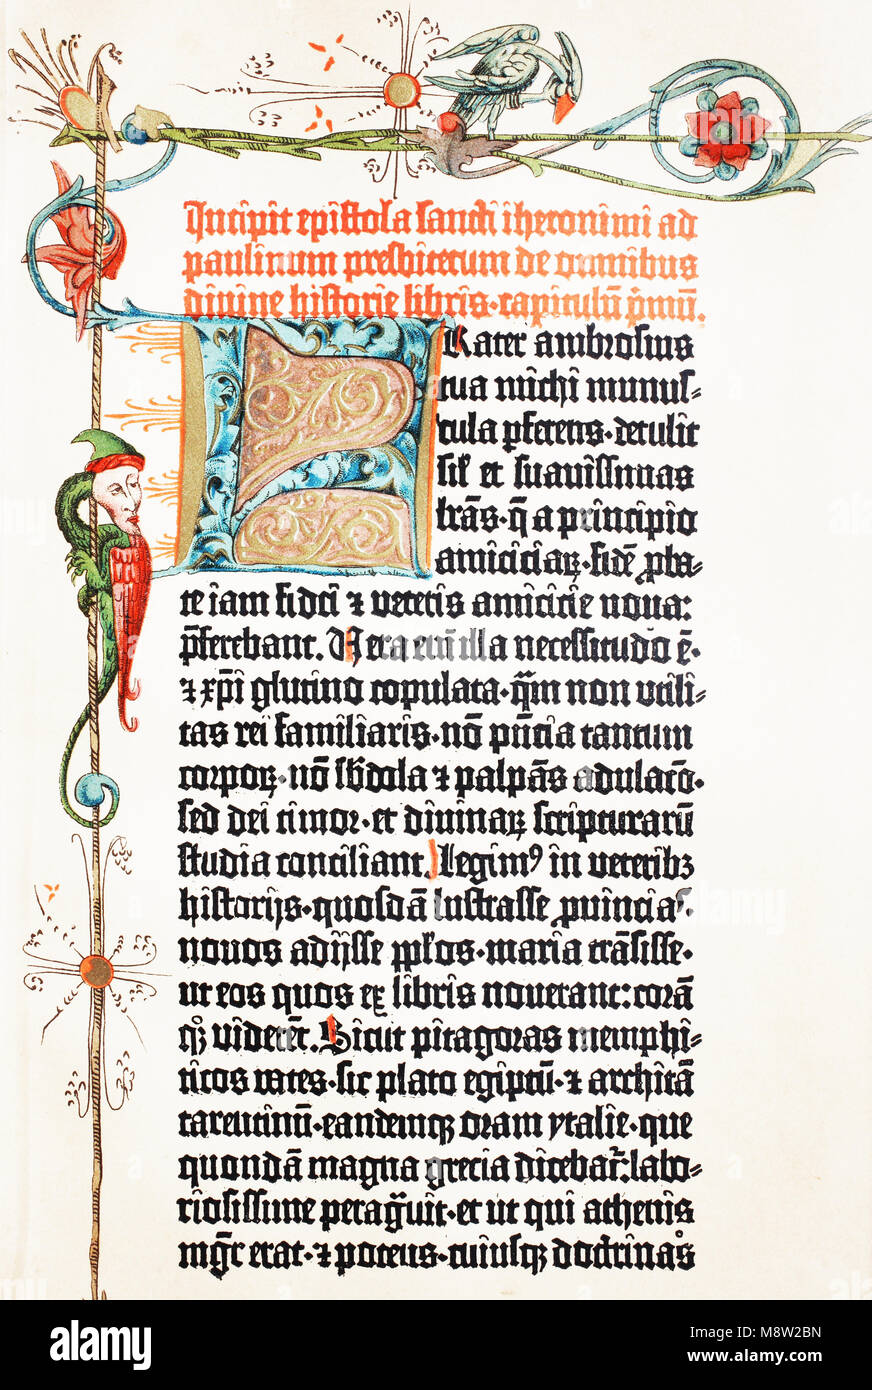 Incipit epistola sancti iheronimi ad
paulinum presbiterum de omnibus
divine historie libris·capitulū pͥmū.
FRater ambrosius
tua michi munus-
cula ꝑferens·detulit
siml̕ et suavissimas
lr̄as·q̄ a principio
amiciciaꝝ·fidē ꝓba-
te iam fidei ⁊ veteris amicicie nova:
p̄ferebant. Vera enī illa necessitudo ē·
⁊ xp̄i glutino copulata·q̄m non utili-
tas rei familiaris·nō p̄ncia tantum
corpoꝝ·nō sb̄dola ⁊ palpās adulacō·
sed dei timor·et divinaꝝ scripturarū
studia conciliant. Legimꝰ in veteribꝫ
historijs·quosdā lustrasse ꝓuincias·
novos adijsse pp̄los·maria trāsisse·
ut eos quos ex libris noverant: corā
qꝫ viderēt. Sicut pitagoras memphi-
ticos vates·sic plato egiptū·⁊ architā
tarentinū·eandemqꝫ oram ytalie·que
quondā magna grecia dicebat̄: labo-
riosissime peragͣvit·et ut qui athenis
mgr̄ erat·⁊ potens·cuiusqꝫ doctrinas
alamy
alamy
Image ID: M8W2BN
www.alamy.com